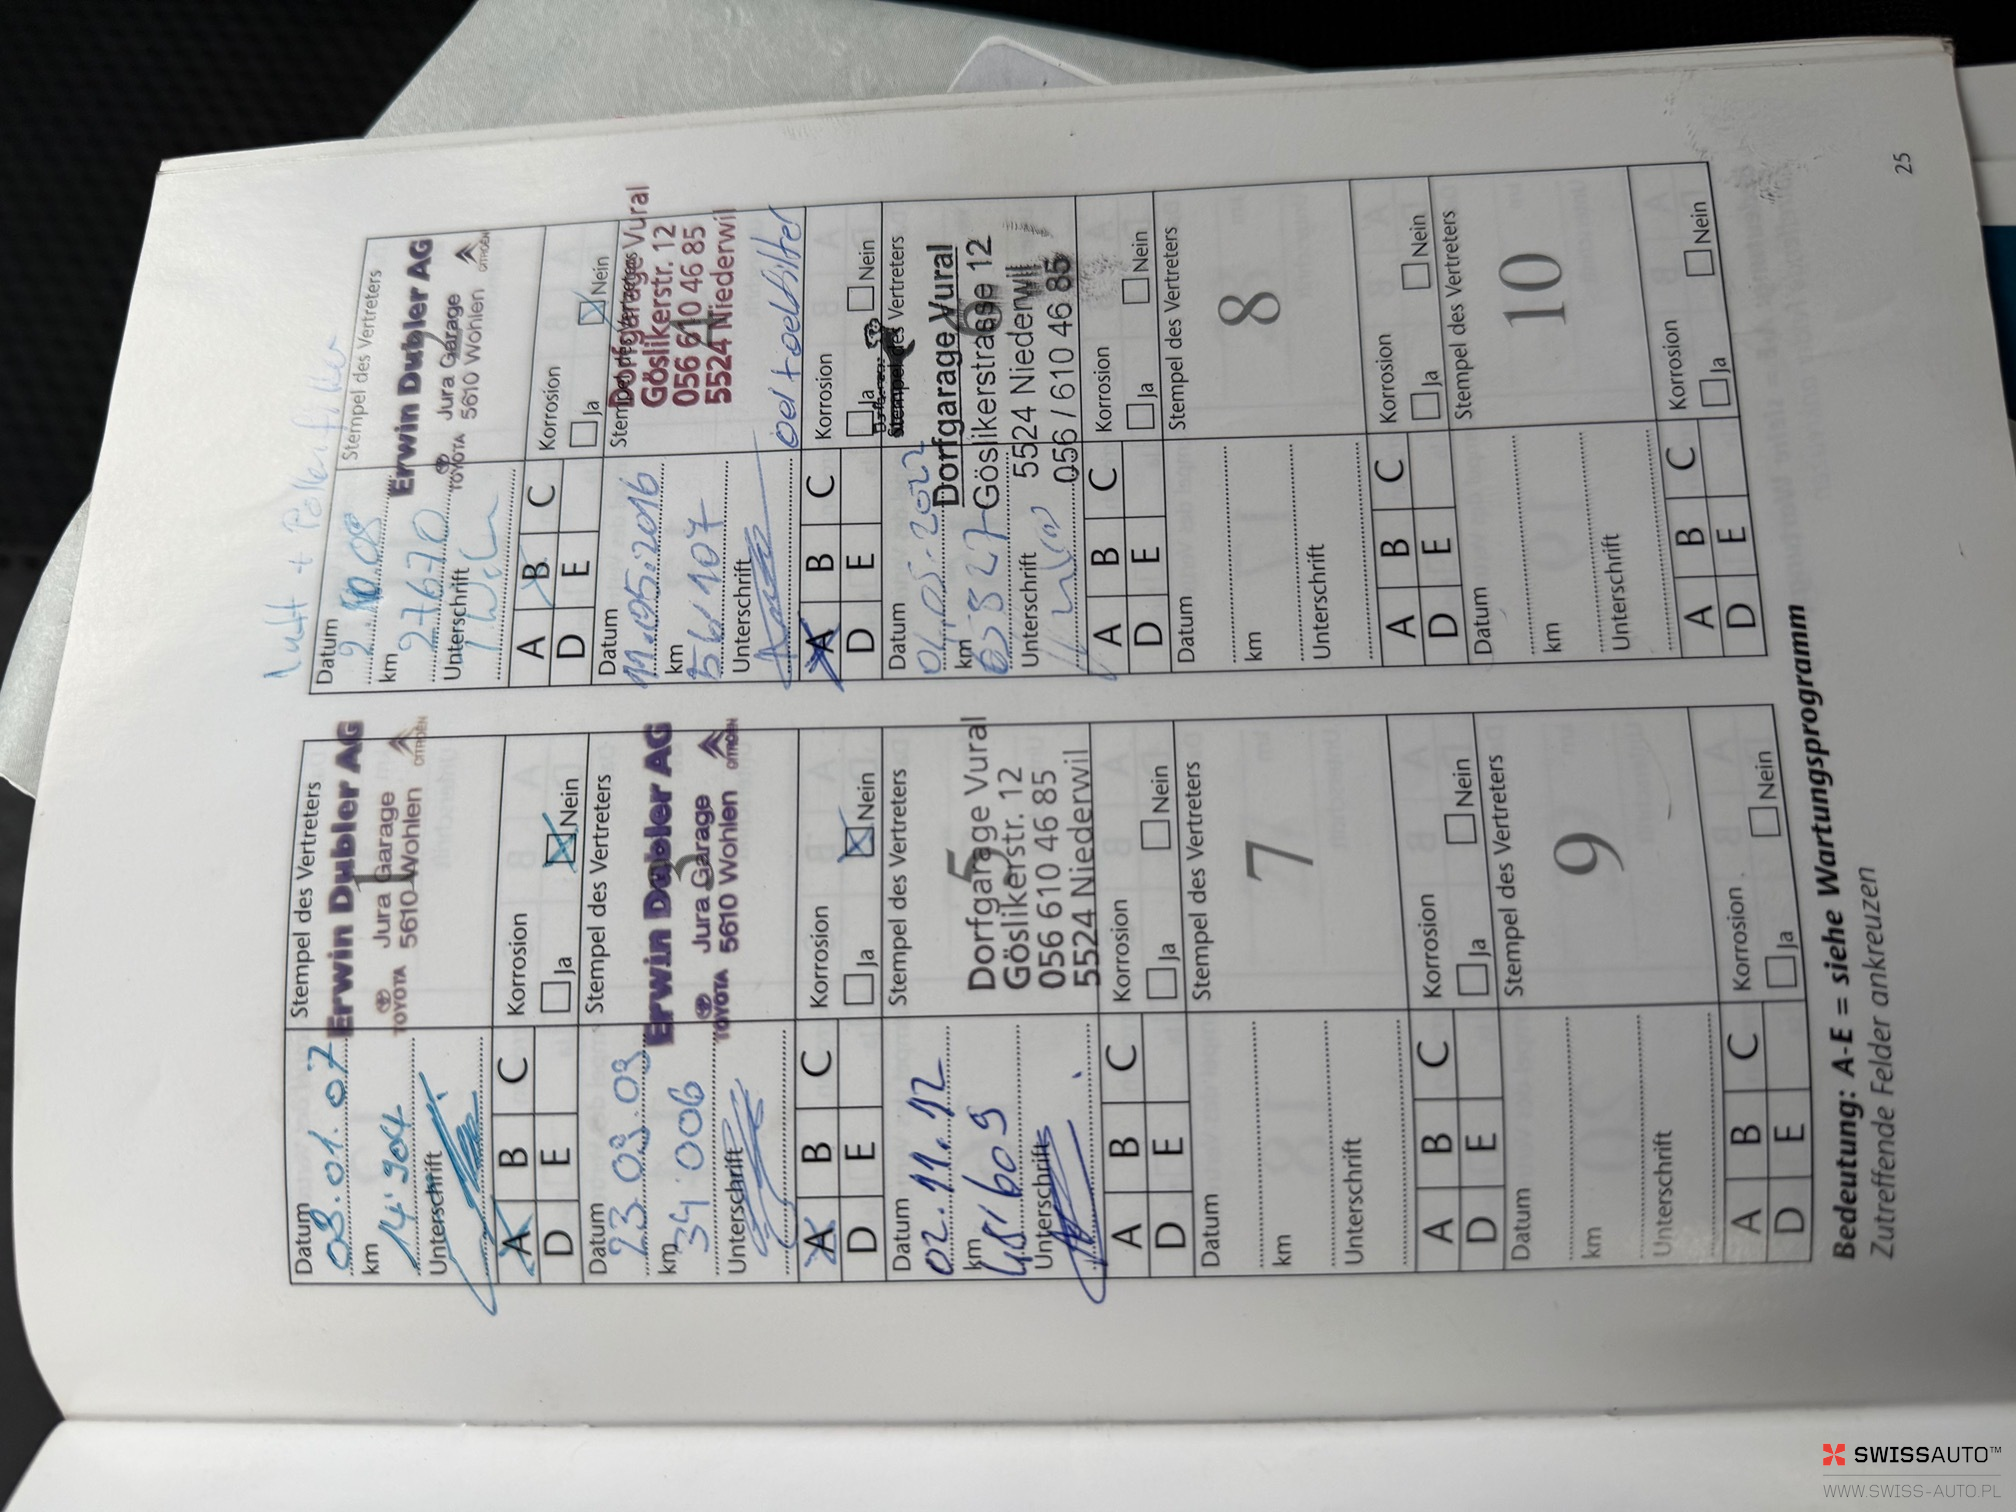 Luft + Pollenfilter
Datum
Stempel des Vertreters
08.01.07
Erwin Dubler AG
km
14'904
Jura Garage
TOYOTA
5610 Wohlen
CITROËN
Unterschrift
A B C
D E
Korrosion
Ja Nein
Datum
Stempel des Vertreters
Erwin Dubler AG
km
27670
Jura Garage
TOYOTA
5610 Wohlen
CITROËN
Unterschrift
A B C
D E
Korrosion
Ja Nein
Datum
Stempel des Vertreters
23.09.09
Erwin Dubler AG
3
km
34.006
Jura Garage
TOYOTA
5610 Wohlen
CITROËN
Unterschrift
A B C
D E
Korrosion
Ja Nein
Datum
11.05.2016
Dorfgarage Vural
Göslikerstr. 12
056 610 46 85
5524 Niederwil
km
56'107
Unterschrift
oel + oelfilter
A B C
D E
Korrosion
Ja Nein
Datum
Stempel des Vertreters
02.11.12
5
Dorfgarage Vural
Göslikerstr. 12
056 610 46 85
5524 Niederwil
km
48'609
Unterschrift
A B C
D E
Korrosion
Ja Nein
Datum
Stempel des Vertreters
04.05.2022
6
Dorfgarage Vural
Göslikerstrasse 12
5524 Niederwil
056 / 610 46 85
km
Unterschrift
A B C
D E
Korrosion
Ja Nein
Datum
Stempel des Vertreters
7
km
Unterschrift
A B C
D E
Korrosion
Ja Nein
Datum
Stempel des Vertreters
8
km
Unterschrift
A B C
D E
Korrosion
Ja Nein
Datum
Stempel des Vertreters
9
km
Unterschrift
A B C
D E
Korrosion
Ja Nein
Datum
Stempel des Vertreters
10
km
Unterschrift
A B C
D E
Korrosion
Ja Nein
Bedeutung: A-E = siehe Wartungsprogramm
Zutreffende Felder ankreuzen
25
SWISSAUTO™
WWW.SWISS-AUTO.PL